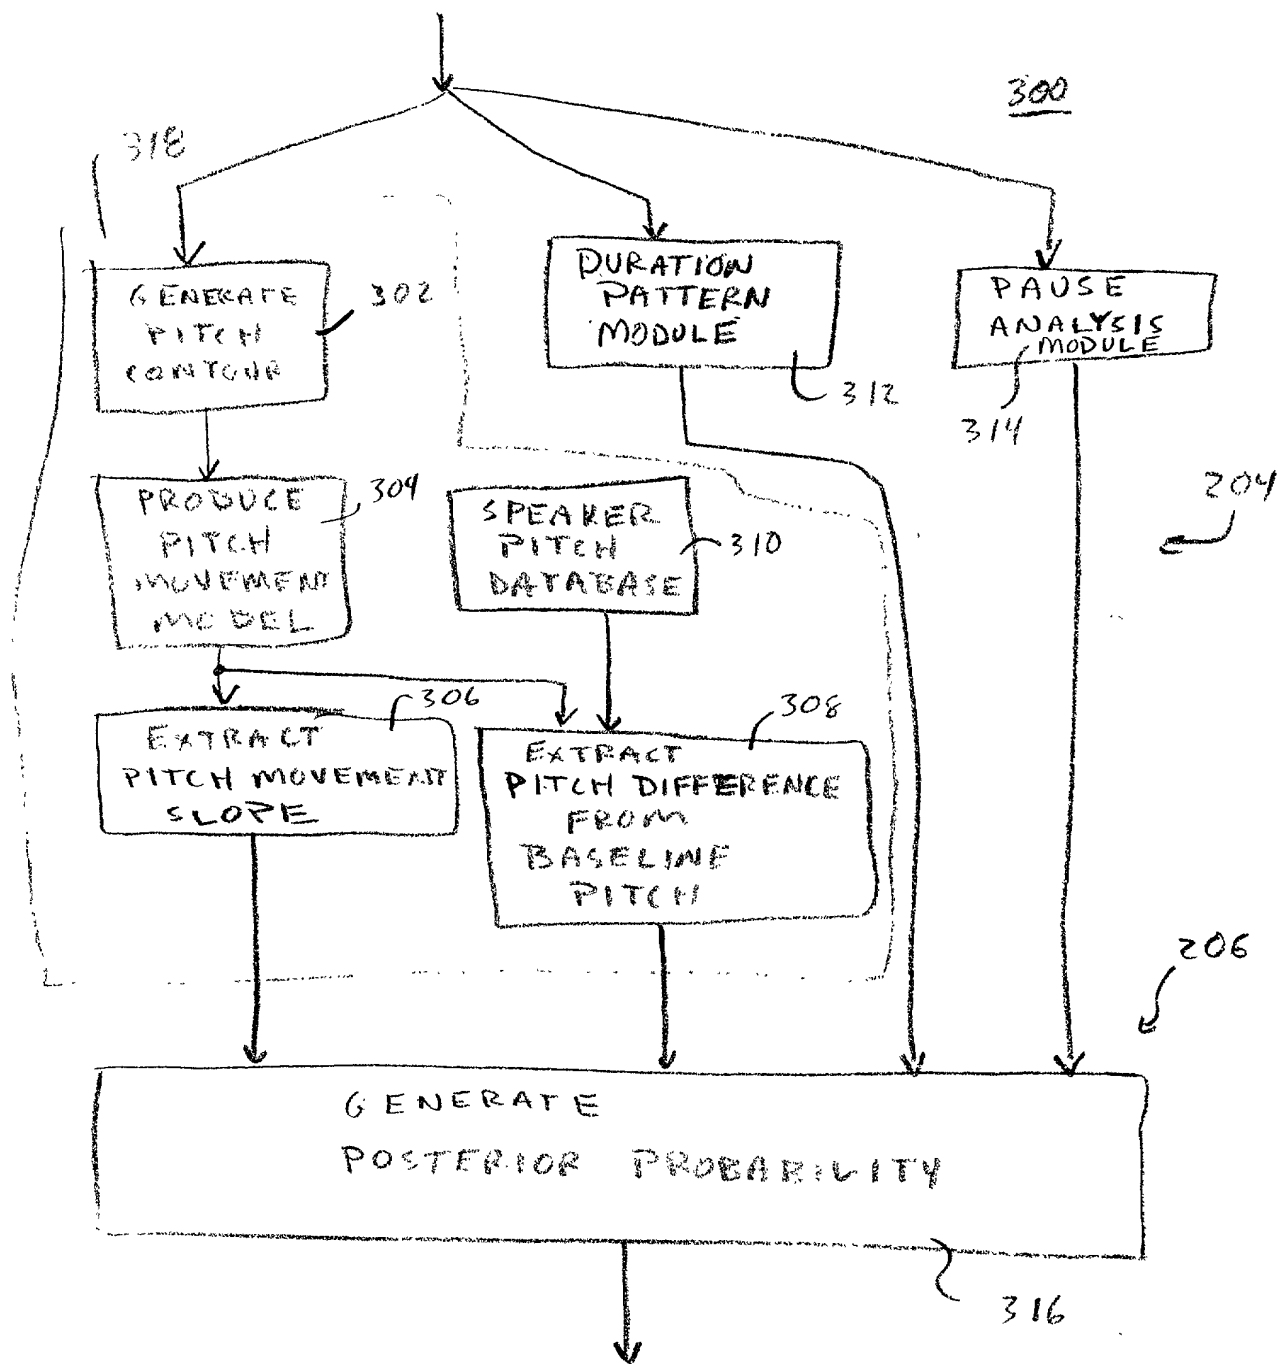 300
318
GENERATE
PITCH
CONTOUR
302
DURATION
PATTERN
MODULE
312
PAUSE
ANALYSIS
MODULE
314
204
PRODUCE
PITCH
MOVEMENT
MODEL
304
SPEAKER
PITCH
DATABASE
310
EXTRACT
PITCH MOVEMENT
SLOPE
306
EXTRACT
PITCH DIFFERENCE
FROM
BASELINE
PITCH
308
206
GENERATE
POSTERIOR PROBABILITY
316